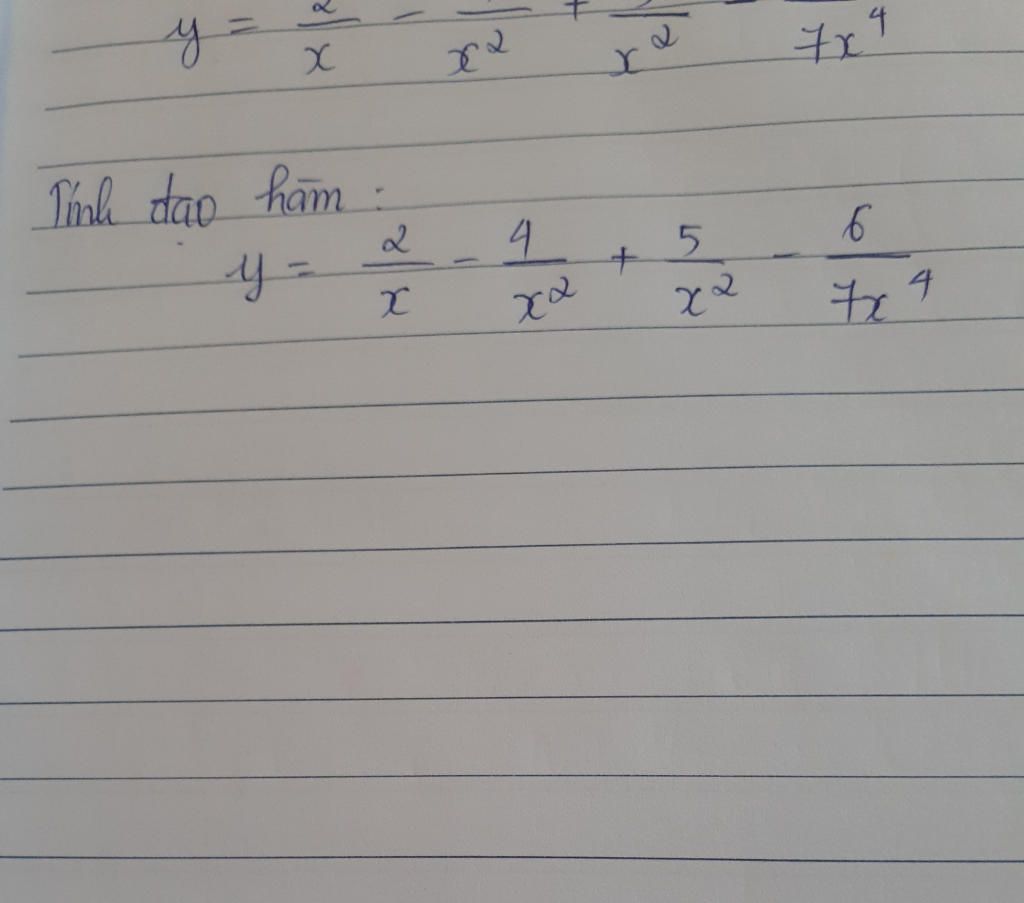 y = 2/x - /x² + /x² - /7x⁴
Tính đạo hàm :
y = 2/x - 4/x² + 5/x² - 6/7x⁴